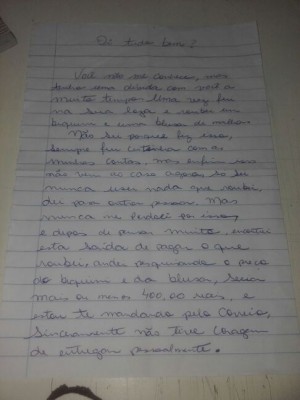 Oi tudo bem?
Você não me conhece, mas
tenho uma dívida com você a
muito tempo. Uma vez fui
na sua loja e roubei um
biquini e uma blusa de
Não sei porque fiz isso,
sempre fui cuidadosa com as
minhas contas, mas enfim isso
não vem ao caso agora. só sei
nunca usei nada que roubei,
dei para outra pessoa. Mas
nunca me perdoei por isso,
e depois de pensar muito,
esta saída de pagar o que
roubei, andei pesquisando o preço
do biquini e da blusa, seria
mais ou menos 400,00 reais, e
estou te mandando pelo Correio,
Sinceramente não tive coragem
de entregar pessoalmente.